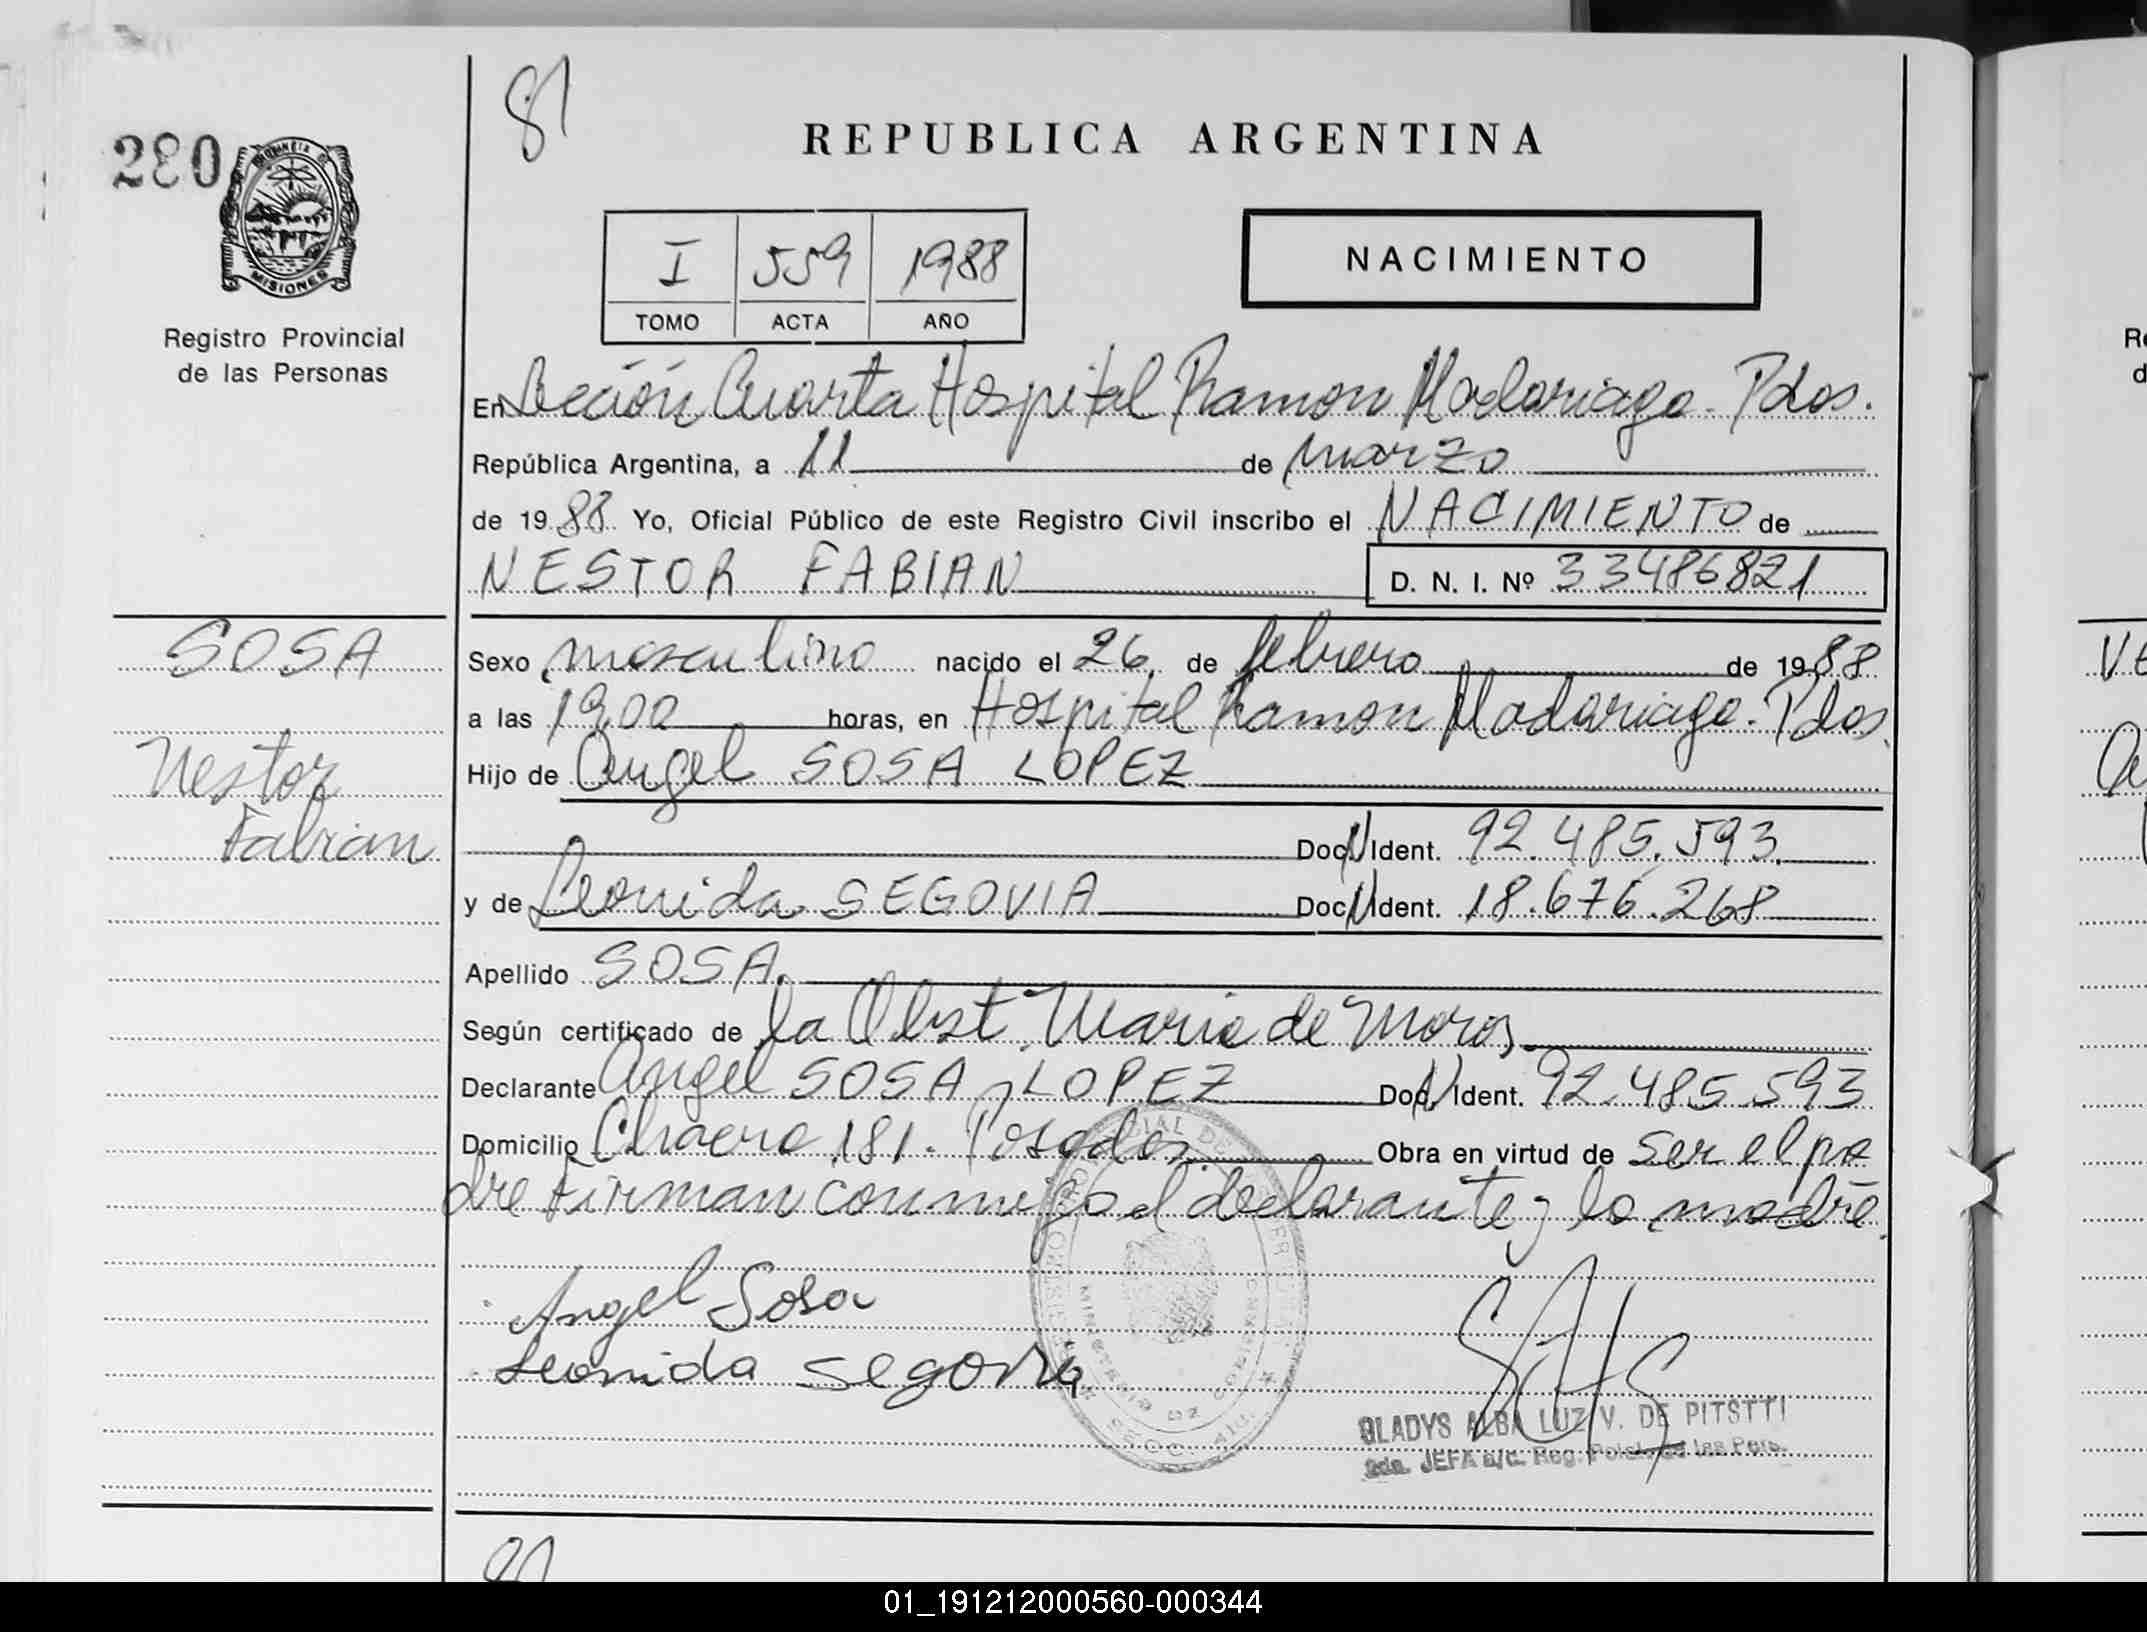 81
280
PROVINCIA DE
MISIONES
Registro Provincial
de las Personas
REPUBLICA ARGENTINA
I 559 1988
TOMO ACTA AÑO
NACIMIENTO
En Sección Cuarta Hospital Ramon Madariaga. Pdas.
República Argentina, a 11 de marzo
de 19 88 Yo, Oficial Público de este Registro Civil inscribo el NACIMIENTO de
NESTOR FABIAN D. N. I. Nº 33486821
SOSA
Nestor
Fabian
Sexo masculino nacido el 26 de febrero de 19 88
a las 19,00 horas, en Hospital Ramon Madariaga. Pdas.
Hijo de Angel SOSA LOPEZ
Doc N Ident. 92.485.593
y de Leonida SEGOVIA Doc N Ident. 18.676.268
Apellido SOSA
Según certificado de la Obst. Maria de Moros
Declarante Angel SOSA LOPEZ Doc N Ident. 92.485.593
Domicilio Chacra 181. Posadas Obra en virtud de ser el pa
dre Firman conmigo el declarante y la madre.
Angel Sosa
Leonida Segovia
GLADYS ALBA LUZ V. DE PITSTTI
2da. JEFA a/c. Reg. de las Pers.
01_191212000560-000344